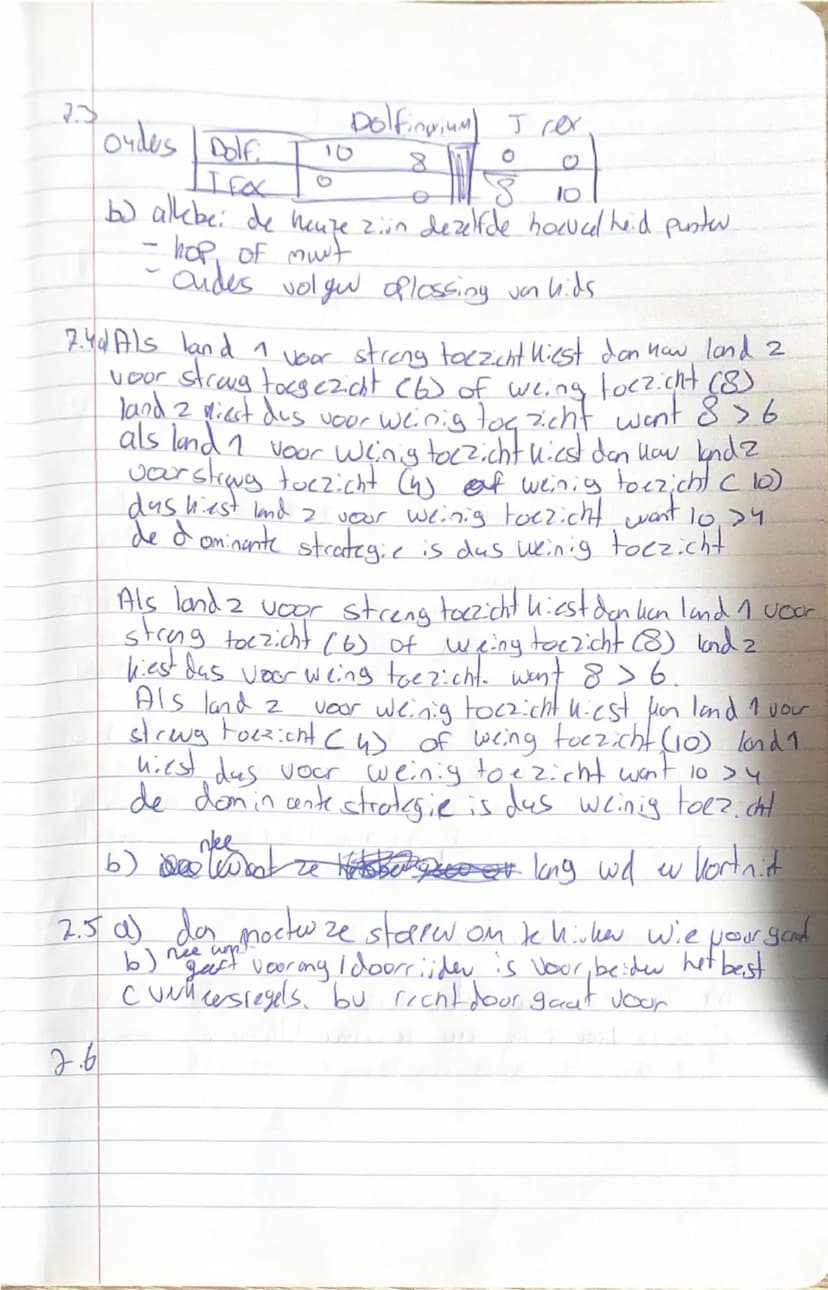 7.3
Dolfinarium T rex
oudes Dolf. 10 8 0 0
T rex 0 0 8 10
b) allebei de keuze zijn dezelfde hoeveelheid punten
- kop of munt
- oudes volgen oplossing van kids
7.4a) Als land 1 voor streng toezicht kiest dan kan land 2
voor streng toegezicht (6) of weinig toezicht (8)
land 2 kiest dus voor weinig toezicht want 8 > 6
als land 1 voor weinig toezicht kiest dan kan land 2
voor streng toezicht (4) of weinig toezicht (10)
dus kiest land 2 voor weinig toezicht want 10 > 4
de dominante strategie is dus weinig toezicht
Als land 2 voor streng toezicht kiest dan kan land 1 voor
streng toezicht (6) of weing toezicht (8) land 2
kiest dus voor weing toezicht. want 8 > 6.
Als land 2 voor weinig toezicht kiest kan land 1 voor
streng toezicht (4) of weing toezicht (10) land 1
kiest dus voor weinig toezicht want 10 > 4
de dominante strategie is dus weinig toezicht
b) nee want ze lang wel en kort nit
7.5 a) dan moeten ze stoppen om te kijken wie voor gaat
b) nee want geeft voorang / doorrijden is voor beiden het best
c verkeersregels. bv rechtdoor gaat voor
7.6